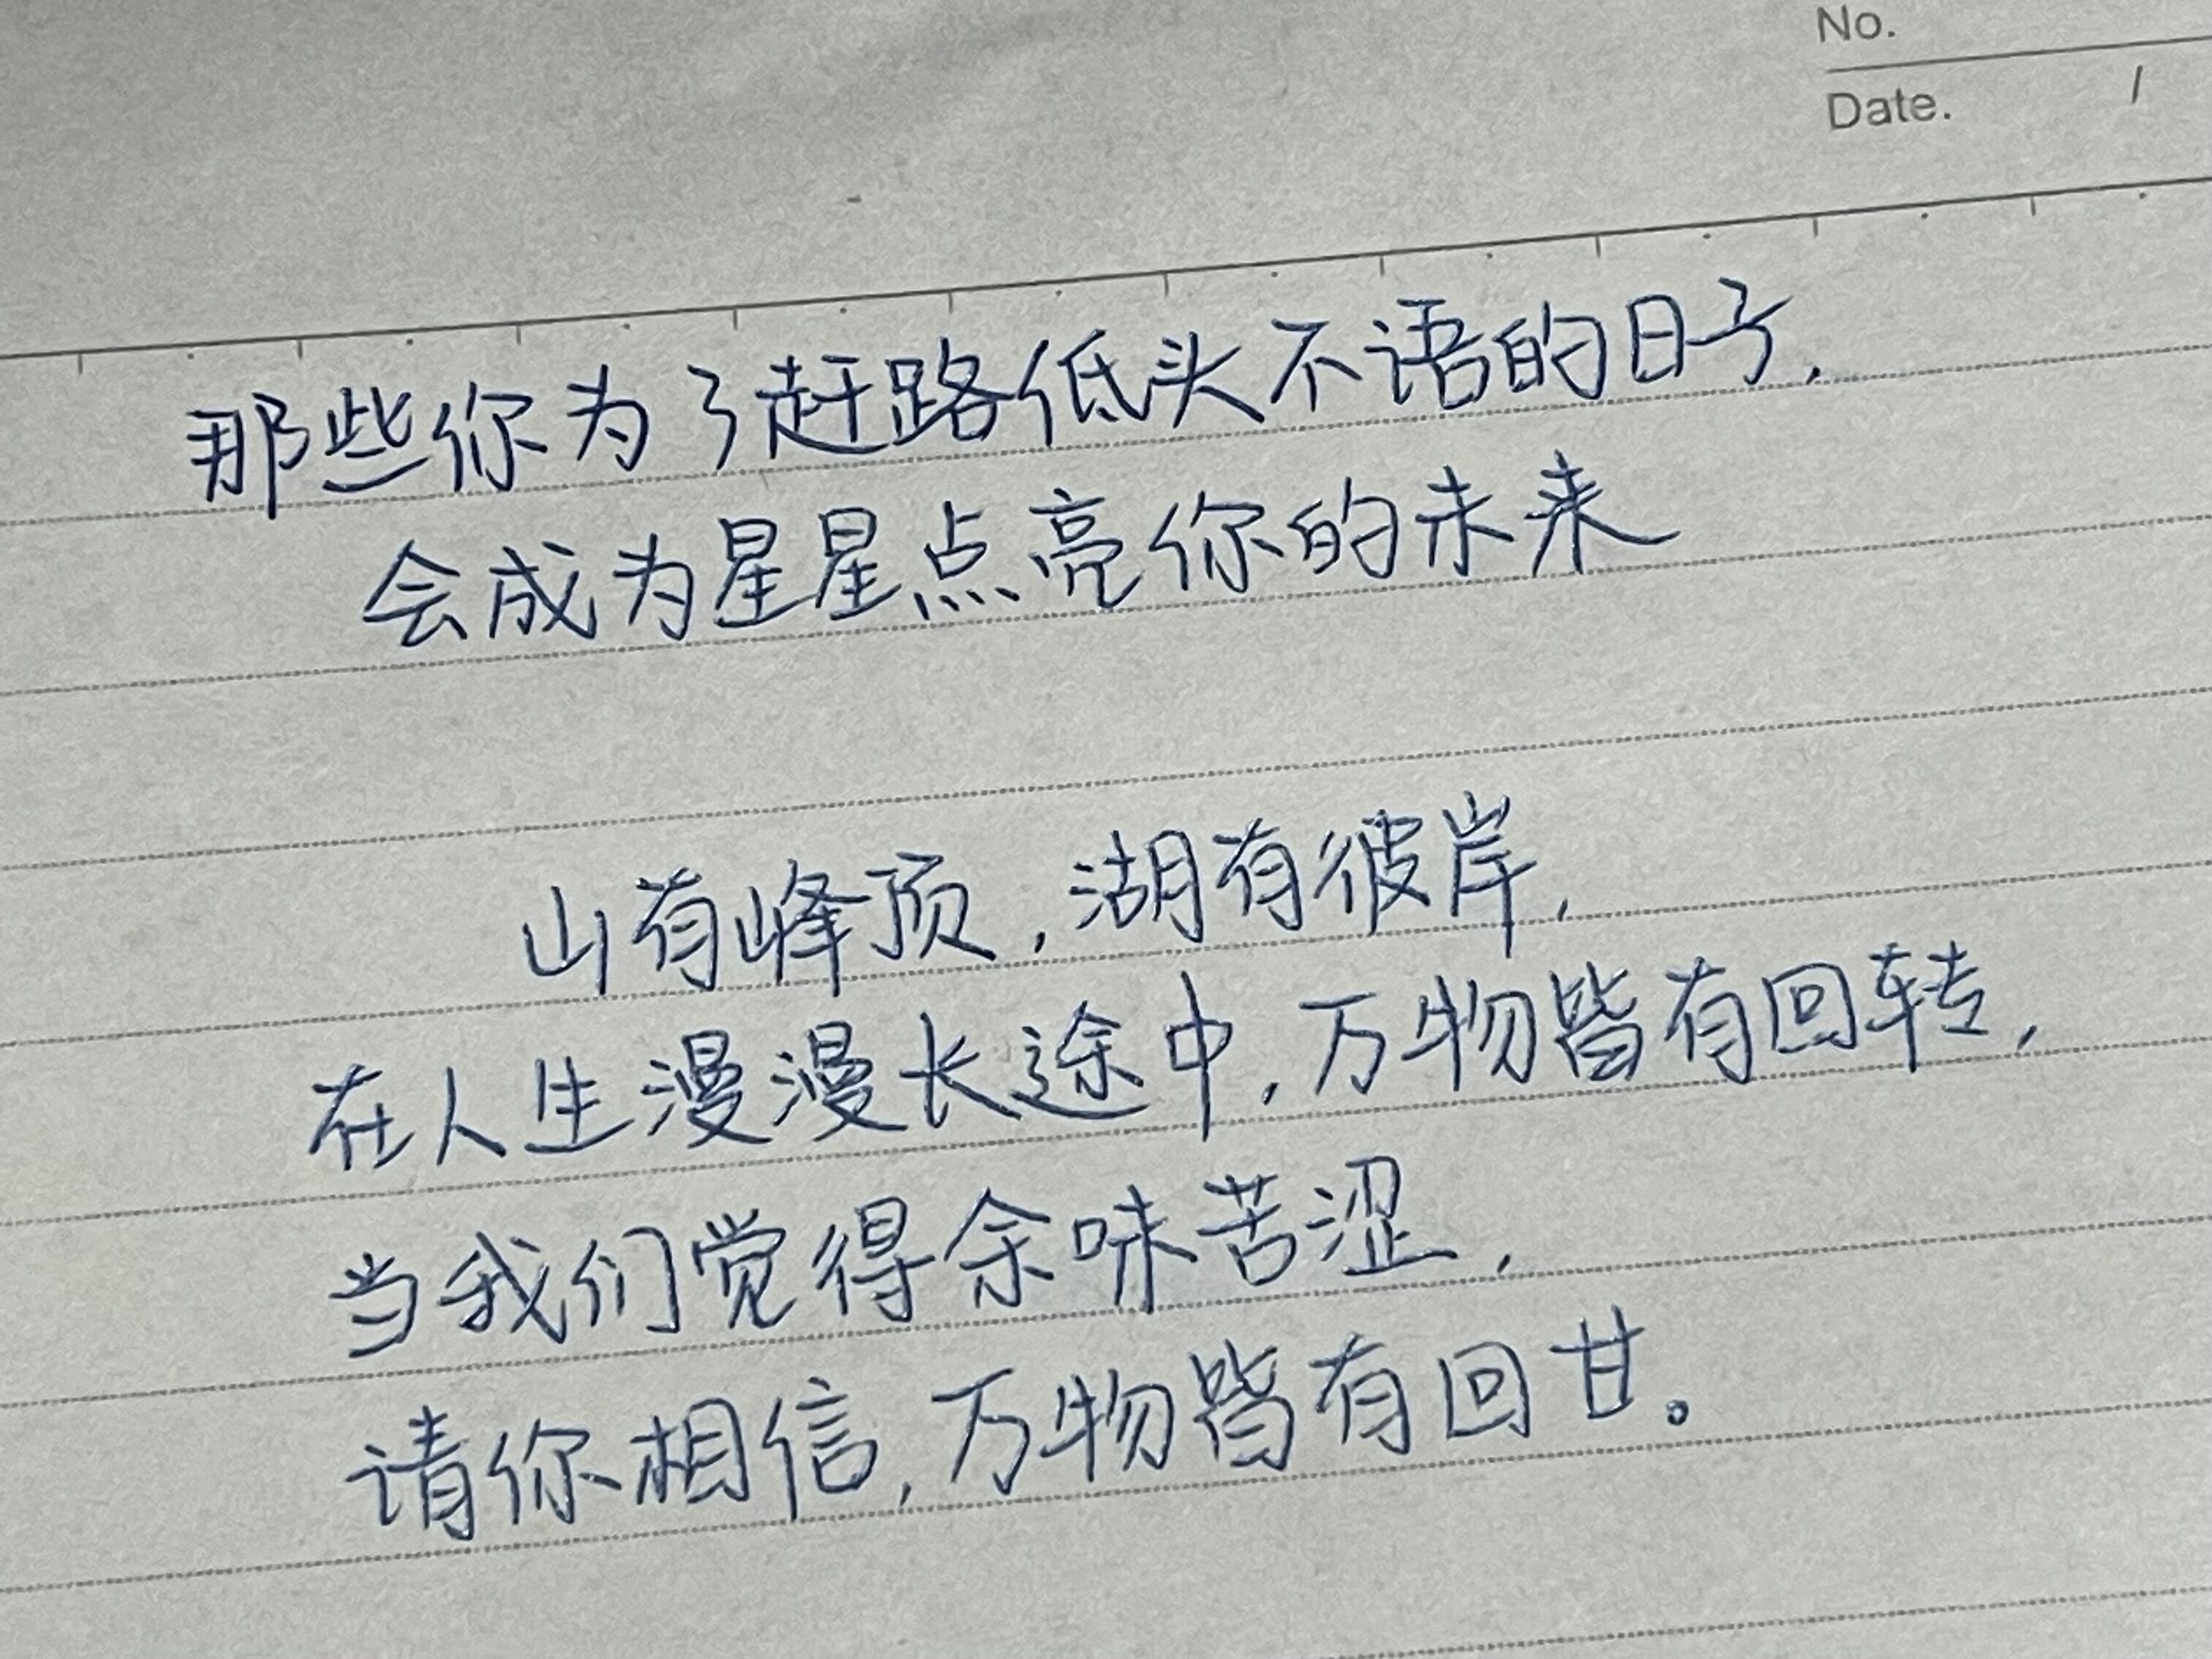 No.
Date. /
那些你为了赶路低头不语的日子,
会成为星星点亮你的未来
山有峰顶,湖有彼岸,
在人生漫漫长途中,万物皆有回转,
当我们觉得余味苦涩,
请你相信,万物皆有回甘。